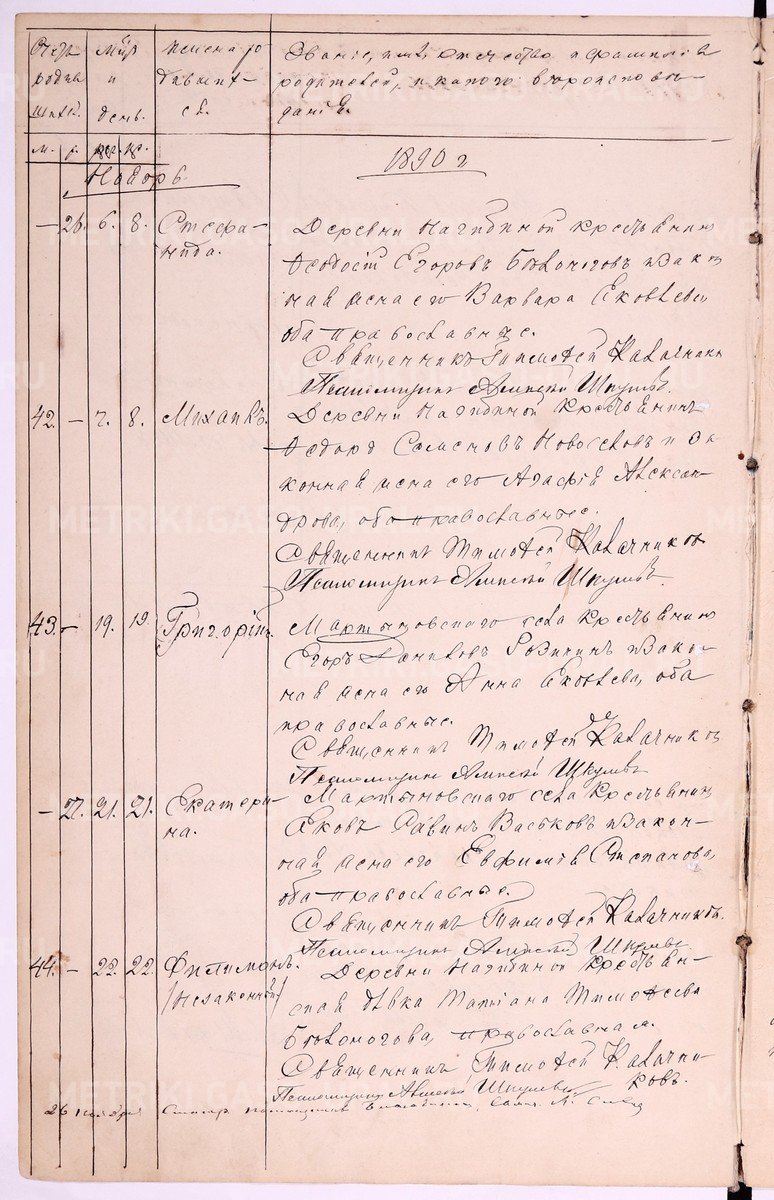 Счетъ родив шихся.
Мѣс. и день.
Имена ро дившихся.
Званіе, имя, отчество и фамилія
родителей, и какого вѣроисповѣ-
данія.
м. ж. рж. кр.
Ноябрь.
1890 г
— 26. 6. 8. Стефа- нида.
Деревни Нагибиной крестьянинъ
Ѳеодосій Егоровъ Бѣлоноговъ и закон
ная жена его Варвара Яковлева,
оба православные.
Священникъ Тимоѳей Калачниковъ
Псаломщикъ Алексѣй Шкулевъ.
42. — 7. 8. Михаилъ.
Деревни Нагибиной крестьянинъ
Ѳедоръ Семеновъ Новоселовъ и за
конная жена его Агафія Алексан-
дрова, оба православные.
Священникъ Тимоѳей Калачниковъ
Псаломщикъ Алексѣй Шкулевъ.
43. — 19. 19. Григорій.
Мартыновскаго села крестьянинъ
Егоръ Даниловъ и зако-
ная жена его Анна Яковлева, оба
православные.
Священникъ Тимоѳей Калачниковъ
Псаломщикъ Алексѣй Шкулевъ
— 27. 21. 21. Екатери- на.
Мартыновскаго села крестьянинъ
Яковъ Васьковъ и закон-
ная жена его Евфимія Степанова,
оба православные.
Священникъ Тимоѳей Калачниковъ.
Псаломщикъ Алексѣй Шкулевъ
44. — 22. 22. Филимонъ.
/незаконный/
Деревни Нагибиной крестьян-
ская дѣвка Татіана Тимоѳеева
Бѣлоногова, православная.
Священникъ Тимоѳей Калачни-
ковъ.
Псаломщикъ Алексѣй Шкулевъ
26 ноября